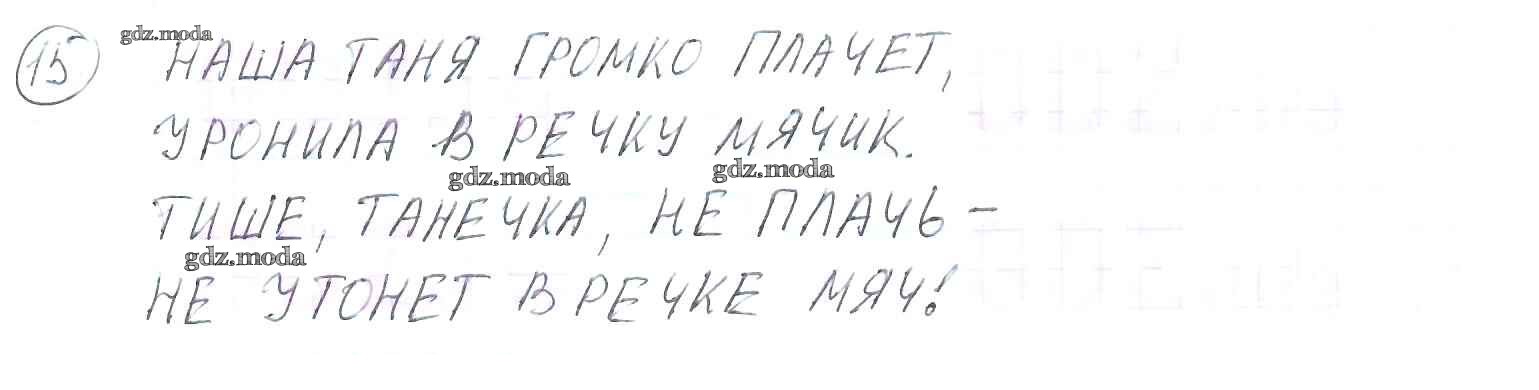 gdz.moda
15 НАША ТАНЯ ГРОМКО ПЛАЧЕТ,
УРОНИЛА В РЕЧКУ МЯЧИК.
gdz.moda gdz.moda
ТИШЕ, ТАНЕЧКА, НЕ ПЛАЧЬ –
gdz.moda
НЕ УТОНЕТ В РЕЧКЕ МЯЧ!